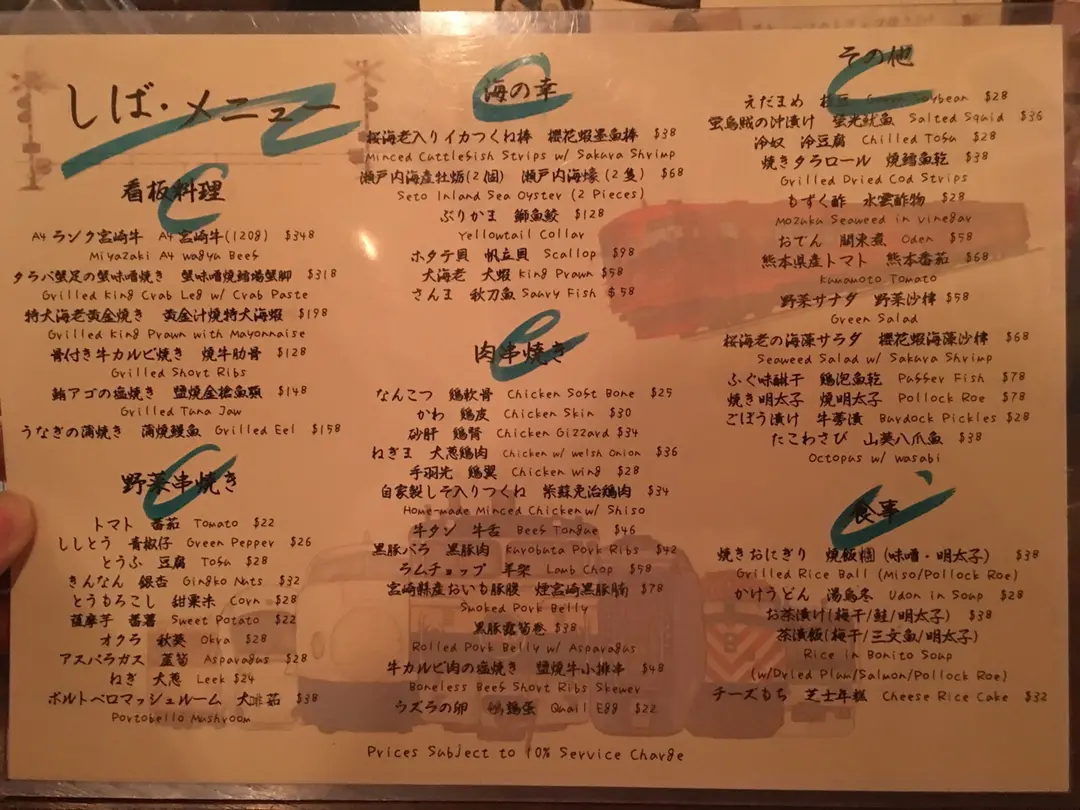 しば・メニュー
看板料理
A4 ランク宮崎牛 A4 宮崎牛(120g) $348
Miyazaki A4 Wagyu Beef
タラバ蟹足の蟹味噌焼き 蟹味噌燒鱈場蟹腳 $318
Grilled King Crab Leg w/ Crab Paste
特大海老黄金焼き 黃金汁燒特大海蝦 $198
Grilled King Prawn with Mayonnaise
骨付き牛カルビ焼き 燒牛肋骨 $128
Grilled Short Ribs
鮪アゴの塩焼き 鹽燒金槍魚顎 $148
Grilled Tuna Jaw
うなぎの蒲焼き 蒲燒鰻魚 Grilled Eel $158
野菜串焼き
トマト 番茄 Tomato $22
ししとう 青椒仔 Green Pepper $26
とうふ 豆腐 Tofu $28
きんなん 銀杏 Gingko Nuts $32
とうもろこし 甜粟米 Corn $28
薩摩芋 番薯 Sweet Potato $22
オクラ 秋葵 Okra $28
アスパラガス 蘆筍 Asparagus $28
ねぎ 大蔥 Leek $24
ポルトベロマッシュルーム 大啡菇 $38
Portobello Mushroom
海の幸
桜海老入りイカつくね棒 櫻花蝦墨魚棒 $38
Minced Cuttlefish Strips w/ Sakura Shrimp
瀬戸内海産牡蛎(2個) 瀨戶內海蠔(2隻) $68
Seto Inland Sea Oyster (2 Pieces)
ぶりかま 鰤魚鮫 $128
Yellowtail Collar
ホタテ貝 帆立貝 Scallop $98
大海老 大蝦 King Prawn $58
さんま 秋刀魚 Saury Fish $58
肉串焼き
なんこつ 鶏軟骨 Chicken Soft Bone $25
かわ 鶏皮 Chicken Skin $30
砂肝 鶏腎 Chicken Gizzard $34
ねぎま 大蔥鶏肉 Chicken w/ Welsh Onion $36
手羽先 鶏翼 Chicken Wing $28
自家製しそ入りつくね 紫蘇免治鶏肉 $34
Home-made Minced Chicken w/ Shiso
牛タン 牛舌 Beef Tongue $46
黒豚バラ 黑豚肉 Kurobuta Pork Ribs $42
ラムチョップ 羊架 Lamb Chop $58
宮崎縣産おいも豚腹 煙宮崎黑豚腩 $78
Smoked Pork Belly
黑豚露筍卷 $38
Rolled Pork Belly w/ Asparagus
牛カルビ肉の塩焼き 鹽燒牛小排串 $48
Boneless Beef Short Ribs Skewer
ウズラの卵 鵪鶉蛋 Quail Egg $22
その他
えだまめ 枝豆 Green Soybean $28
蛍烏賊の沖漬け 螢光魷魚 Salted Squid $36
冷奴 冷豆腐 Chilled Tofu $28
焼きタラロール 燒鱈魚乾 $38
Grilled Dried Cod Strips
もずく酢 水雲酢物 $28
Mozuku Seaweed in Vinegar
おでん 關東煮 Oden $58
熊本県産トマト 熊本番茄 $68
Kumamoto Tomato
野菜サナダ 野菜沙律 $58
Green Salad
桜海老の海藻サラダ 櫻花蝦海藻沙律 $68
Seaweed Salad w/ Sakura Shrimp
ふぐ味醂干 鶏泡魚乾 Puffer Fish $78
焼き明太子 燒明太子 Pollock Roe $78
ごぼう漬け 牛蒡漬 Burdock Pickles $28
たこわさび 山葵八爪魚 $38
Octopus w/ Wasabi
食事
焼きおにぎり 燒飯糰 (味噌・明太子) $38
Grilled Rice Ball (Miso/Pollock Roe)
かけうどん 湯烏冬 Udon in Soup $28
お茶漬け(梅干/鮭/明太子) $38
茶漬飯(梅干/三文魚/明太子)
Rice in Bonito Soup
(w/Dried Plum/Salmon/Pollock Roe)
チーズもち 芝士年糕 Cheese Rice Cake $32
Prices Subject to 10% Service Charge